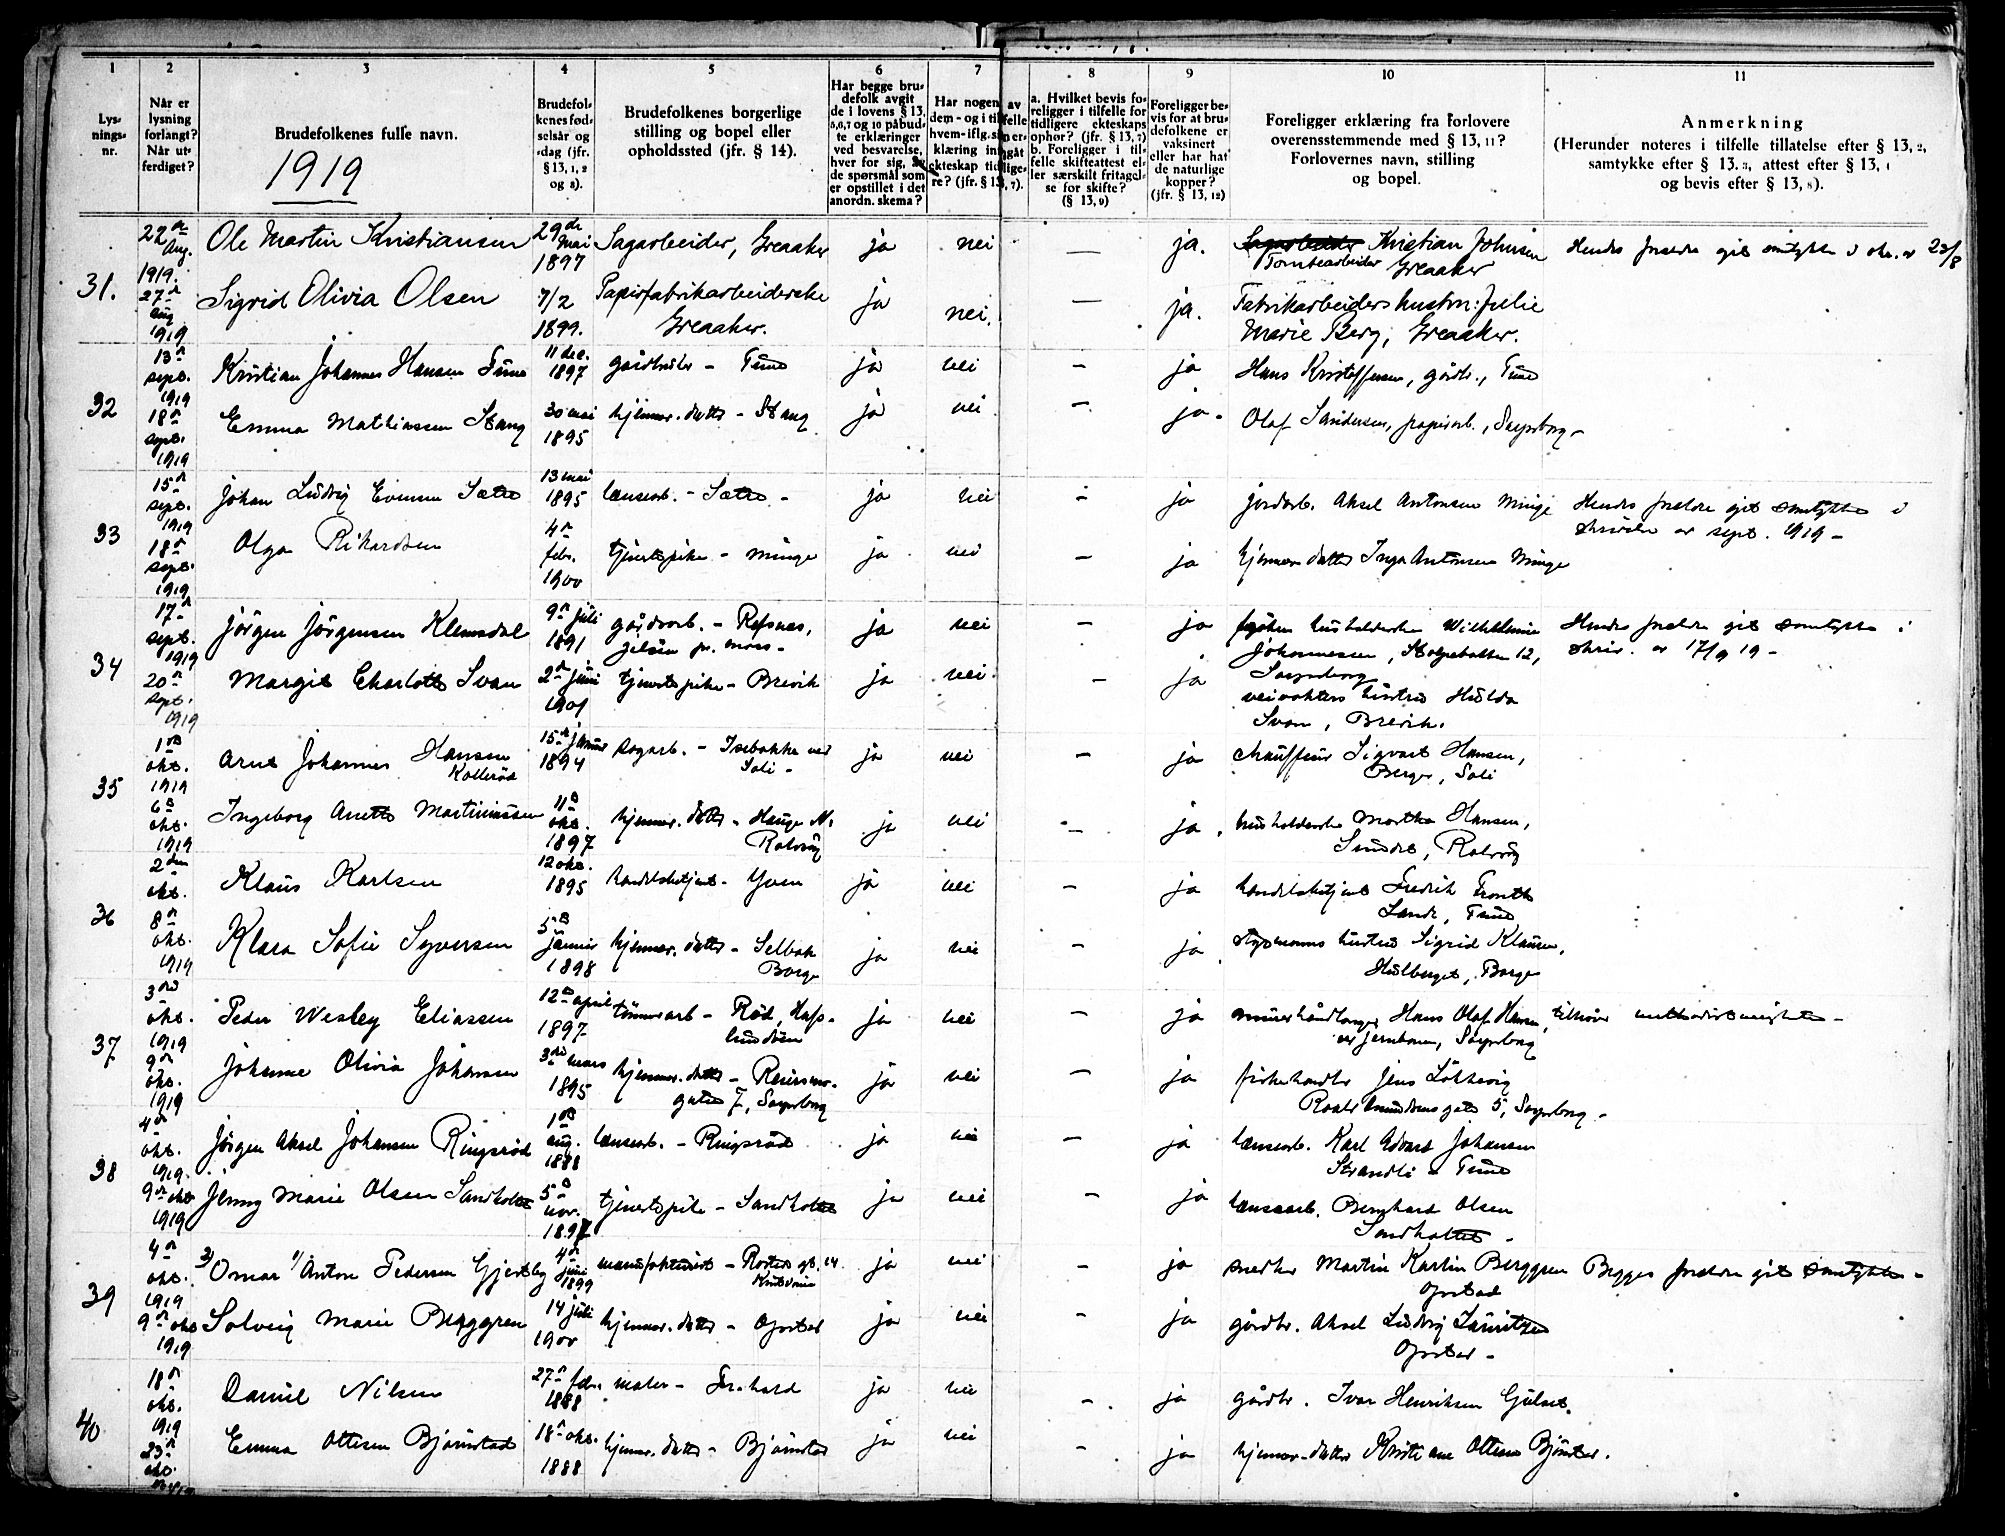 1
2
3
4
5
6
7
8
9
10
11
Lys-
nings-
nr.
Når er
lysning
forlangt?
Når ut-
ferdiget?
Brudefolkenes fulle navn.
1919
Brudefol-
kenes fød-
selsår og
-dag (jfr.
§ 13, 1, 2
og 8).
Brudefolkenes borgerlige
stilling og bopel eller
opholdssted (jfr. § 14).
Har begge bru-
defolk avgit
de i lovens § 13,
5,6,7 og 10 påbud-
te erklæringer
ved besvarelse,
hver for sig, av
de spørsmål som
er opstillet i det
anordn. skema?
Har nogen av
dem - og i tilfelle
hvem - iflg. sin er-
klæring inngåt
ekteskap tidlige-
re? (jfr. § 13, 7).
a. Hvilket bevis fo-
religger i tilfelle for
tidligere ekteskaps
ophør? (jfr. § 13, 7)
b. Foreligger i til-
felle skifteattest el-
ler særskilt fritagel-
se for skifte?
(§ 13, 9)
Foreligger be-
vis for at bru-
defolkene er
vaksinert
eller har hat
de naturlige
kopper?
(jfr. § 13, 12)
Foreligger erklæring fra forlovere
overensstemmende med § 13, 11?
Forlovernes navn, stilling
og bopel.
Anmerkning
(Herunder noteres i tilfelle tillatelse efter § 13, 2,
samtykke efter § 13. 3, attest efter § 13, 4
og bevis efter § 13, 8).
31.
22de Aug. 1919. Ole Martin Kristiansen 29de Mai 1897 Sagarbeider, Greaaker ja nei — ja. Kristian Johnsen Hendes forældre git samtykke i skr. av 23/8
Tomtearbeider Greaaker
27de Aug 1919 Sigrid Olivia Olsen 7/2 1899. Papirfabrikarbeiderske ja nei. — ja. Fabrikarbeiders hustru: Julie
Greaaker. Marie Berg, Greaaker.
32
13de sept. 1919 Kristian Johannes Hansen Tune 11 dec. 1897 gårdbruker – Tune ja nei – ja Hans Kristoffersen, gårdbr., Tune
18de sept. 1919 Emma Mathiassen Stang 30 mai 1895 hjemmev. datter – Stang ja nei – ja. Olaf Sandersen, papirarb., Sarpsborg –
33
15de sept. 1919 Johan Ludvig Evensen Sætre 13 mai 1895 lænsearb. – Sætre – ja nei – ja jordarb. Aksel Antonsen Minge Hendes forældre git samtykke i
skrivelse av sept. 1919 –
18de sept. 1919 Olga Rikardsen 4de febr. 1900 tjenestepike – Minge ja nei – ja hjemmev. datter Inga Antonsen Minge
34
17de sept. 1919 Jörgen Jörgensen Klemsdal 9de juli 1891 gårdsarb. – Refsnes, ja nei – ja frøken husholderske Wilhelmine Hendes forældre git samtykke i
Jelöen pr. Moss – Johannessen, Stolpebakken 12, skriv. av 17/9 19 –
Sarpsborg
20de sept. 1919 Margit Charlotte Svan 2de juni 1901 tjenestepike – Brevik ja nei. – ja
veivokters hustru Hulda
Svan, Brevik.
35
1ste okt. 1919 Arne Johannes Hansen 15de januar 1894 sagarb. – Isebakke ved ja nei – ja chauffeur Sigvart Hansen,
Kollerød Soli – Berge, Soli
6te okt. 1919 Ingeborg Anette Martiniussen 11te okt. 1897 hjemmev. datter – Hauge N. ja nei – ja. husholderske Martha Hansen,
Rolvsöy Sundet, Rolvsöy
36
2den okt. Klaus Karlsen 12 okt. 1895 handelsbetjent – Yven ja nei – ja handelsbetjent Fredrik
Lande, Tune
8de okt. 1919 Klara Sofie Syversen 5te januar 1898 hjemmev. datter – Selbak ja nei – ja. hustru Sigrid Klausen,
Borge Borge
37
3die okt. 1919 Peder Wesley Eliassen 12te april 1897 tömmerarb – Röd, Hafs- ja nei – ja murerhåndlanger Hans Olaf Hansen, tilhører methodistmenigheten –
lundsöen ved jernbanen, Sarpsborg
9de okt. 1919 Johanne Olivia Johansen 3die mars 1895 hjemmev. datter – ja nei – ja fiskehandler Jens Lökkevig
gaten 7, Sarpsborg Roald Amundsens gate 5, Sarpsborg –
38
4de okt. 1919. Jörgen Aksel Johansen Ringsröd 1ste aug. 1888 lænsearb. – Ringsröd ja nei – ja lænsearb. Karl Edvard Johansen
Strandli – Tune
9de okt 1919 Jenny Marie Olsen Sandholtet 5te nov. 1897 tjenestepike – Sandholtet ja nei – ja lænsearb. Bernhard Olsen
Sandholtet –
39
4de okt. 1919 2) Omar 1) Anton Pedersen Gjerlöy 4de juni 1899 manufakturist – gt. 14 ja nei – ja snedker Martin Karlin Berggren Begges forældre git samtykke –
Opstad
9de okt 1919 Solveig Marie Berggren 14 juli 1900 hjemmev. datter – Opstad ja nei – ja gårdbr. Aksel Ludvig Lauritzen
Opstad –
40
18de okt. 1919 Daniel Nilsen 27de febr. 1888 maler – ja nei – ja gårdbr. Ivar Henriksen
23de okt. Emma Ottesen Bjørnstad 18de okt. 1888 hjemmev. datter – Bjørnstad ja nei – ja hjemmev. datter Kristiane Ottesen Bjørnstad.